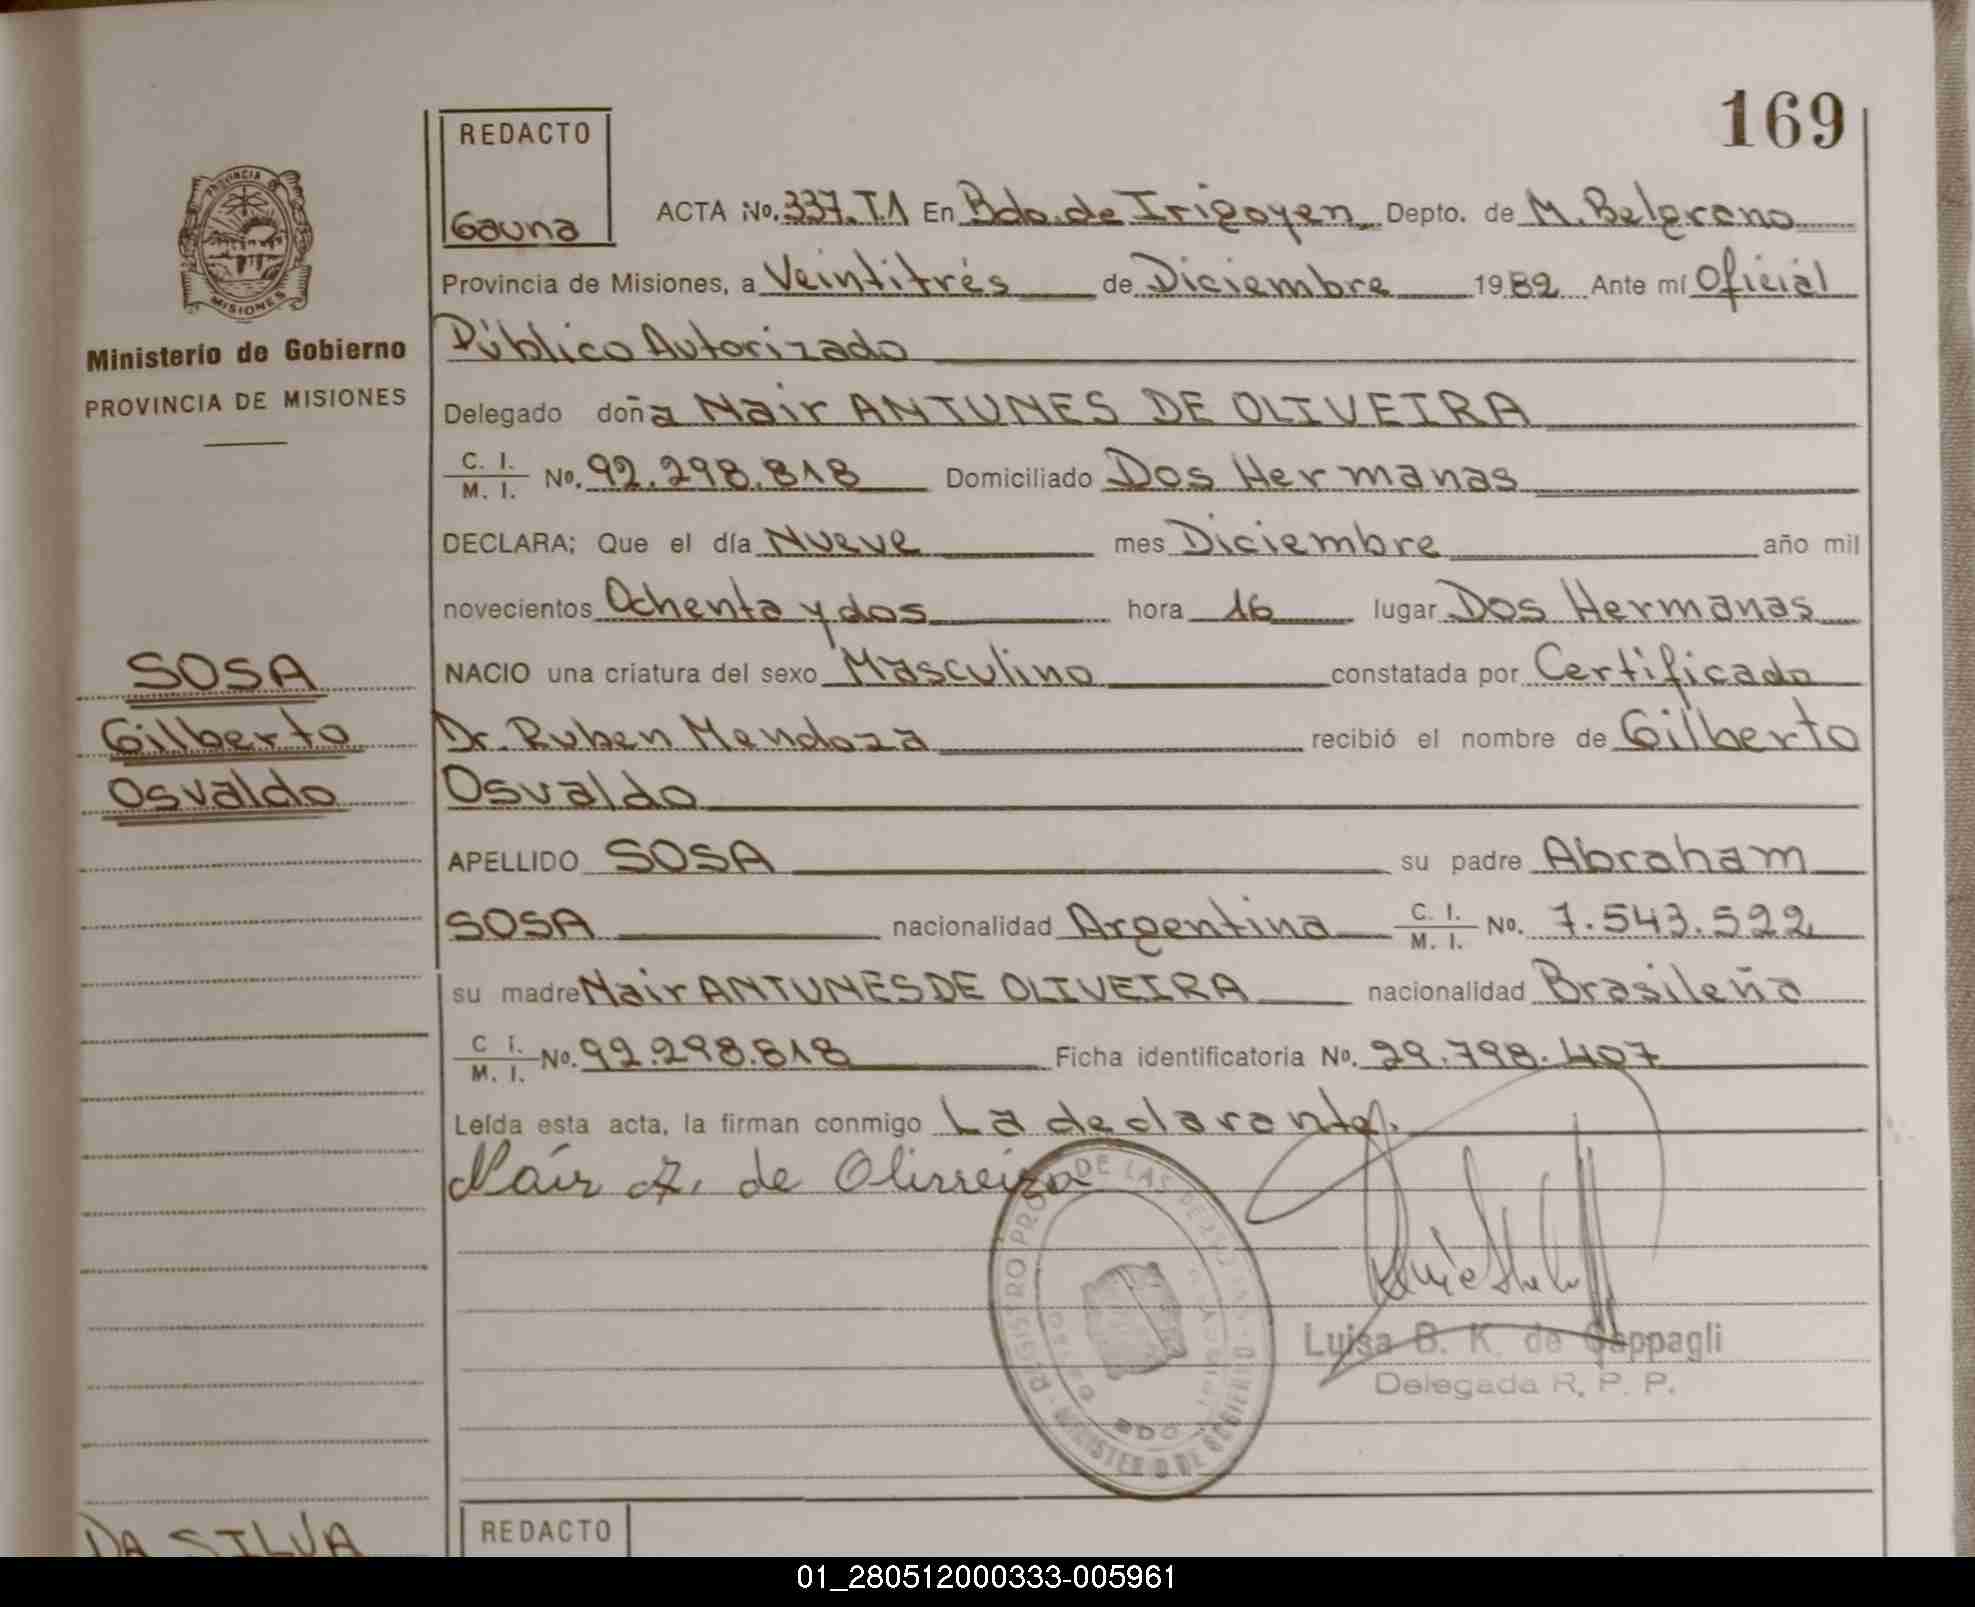 169
REDACTO
Gauna
ACTA No. 337. T.1 En Bdo. de Irigoyen Depto. de M. Belgrano
Provincia de Misiones, a Veintitrés de Diciembre 1982 Ante mí Oficial
Público Autorizado
Delegado doña Nair ANTUNES DE OLIVEIRA
C. I. / M. I. No. 92.298.818 Domiciliado Dos Hermanas
DECLARA; Que el día Nueve mes Diciembre año mil
novecientos Ochenta y dos hora 16 lugar Dos Hermanas
NACIO una criatura del sexo Masculino constatada por Certificado
Dr. Ruben Mendoza recibió el nombre de Gilberto
Osvaldo
APELLIDO SOSA su padre Abraham
SOSA nacionalidad Argentina C. I. / M. I. No. 7.543.522
su madre Nair ANTUNES DE OLIVEIRA nacionalidad Brasileña
C I. / M. I. No. 92.298.818 Ficha identificatoria No. 29.798.407
Leída esta acta, la firman conmigo La declarante.
Nair A. de Oliveira
REGISTRO PROV. DE LAS PERSONAS
MINISTERIO DE GOBIERNO
BDO.
Luisa B. K. de Cappagli
Delegada R. P. P.
PROVINCIA DE
MISIONES
Ministerio de Gobierno
PROVINCIA DE MISIONES
SOSA
Gilberto
Osvaldo
DA SILVA
REDACTO
01_280512000333-005961